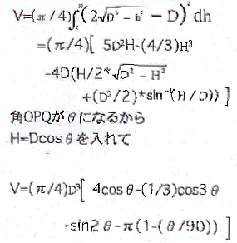 V=(π/4)∫(2√D²-h² - D)² dh
=(π/4)[ 5D²H-(4/3)H³
-4D(H/2*√D² - H²
+(D²/2)*sin⁻¹(H/D)) ]
角OPQがθになるから
H=Dcosθを入れて
V=(π/4)D³[ 4cosθ-(1/3)cos3θ
-sin2θ-π(1-(θ/90)) ]